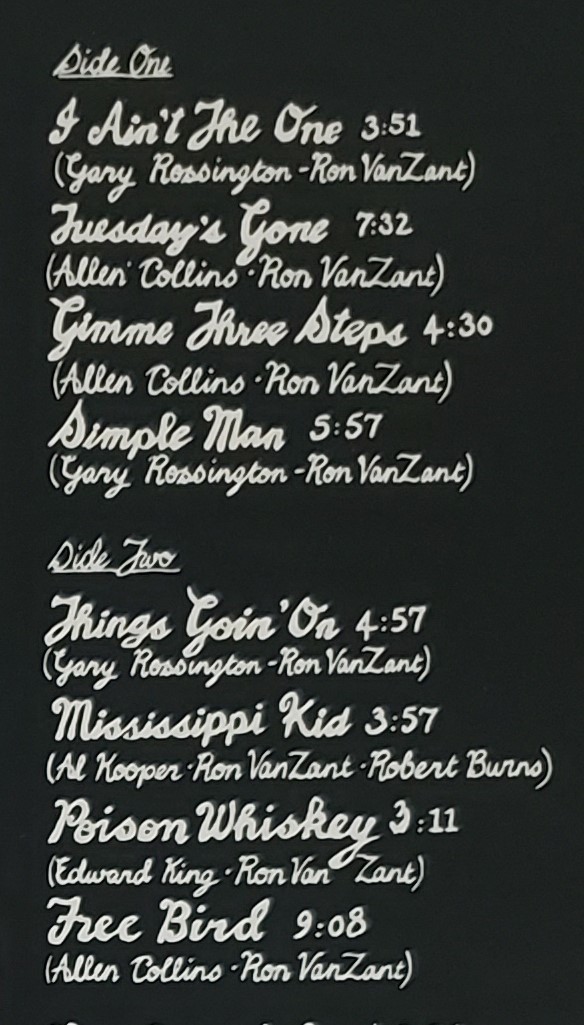 Side One
I Ain't The One 3:51
(Gary Rossington-Ron VanZant)
Tuesday's Gone 7:32
(Allen Collins·Ron VanZant)
Gimme Three Steps 4:30
(Allen Collins·Ron VanZant)
Simple Man 5:57
(Gary Rossington-Ron VanZant)
Side Two
Things Goin' On 4:57
(Gary Rossington-Ron VanZant)
Mississippi Kid 3:57
(Al Kooper·Ron VanZant·Robert Burns)
Poison Whiskey 3:11
(Edward King·Ron Van Zant)
Free Bird 9:08
(Allen Collins·Ron VanZant)